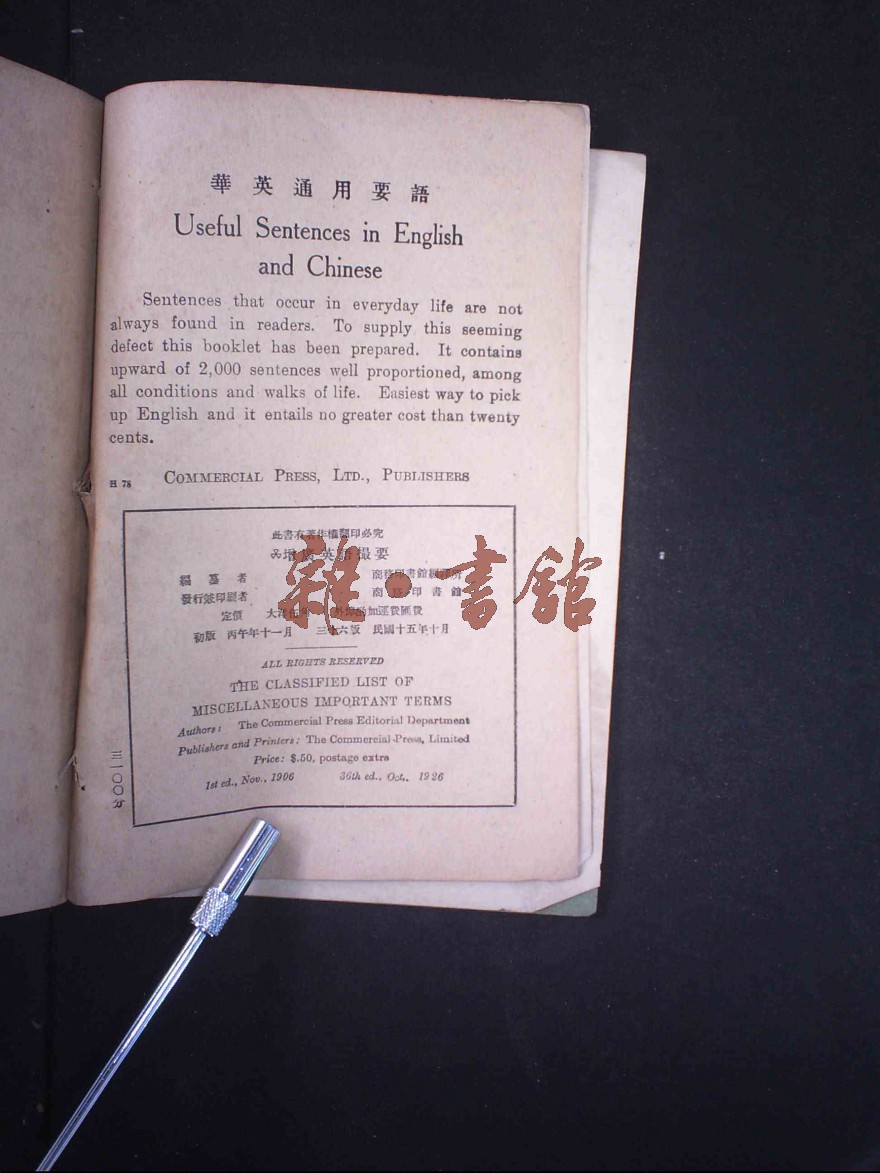 華英通用要語
Useful Sentences in English
and Chinese
Sentences that occur in everyday life are not
always found in readers. To supply this seeming
defect this booklet has been prepared. It contains
upward of 2,000 sentences well proportioned, among
all conditions and walks of life. Easiest way to pick
up English and it entails no greater cost than twenty
cents.
H 78 COMMERCIAL PRESS, LTD., PUBLISHERS
此書有著作權翻印必究
增廣英語撮要
編纂者 商務印書館編譯所
發行兼印刷者 商務印書館
定價 大洋伍角 外埠酌加運費匯費
初版 丙午年十一月 三十六版 民國十五年十月
ALL RIGHTS RESERVED
THE CLASSIFIED LIST OF
MISCELLANEOUS IMPORTANT TERMS
Authors: The Commercial Press Editorial Department
Publishers and Printers: The Commercial Press, Limited
Price: $.50, postage extra
1st ed., Nov., 1906 36th ed., Oct., 1926
三一〇〇分
雜·書館